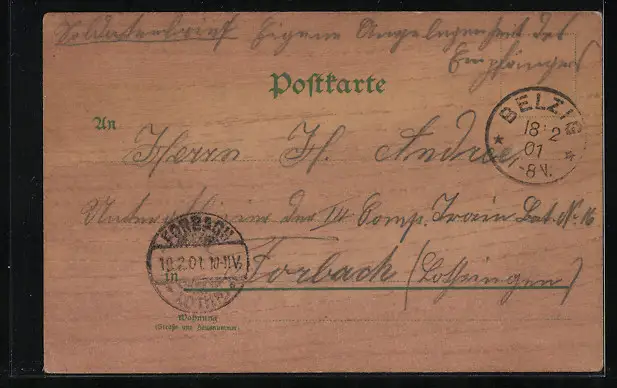 Soldatenbrief Eigene Angelegenheit des
Empfängers
Postkarte
An
BELZIG
18 2
01
-8N.
Herrn H. Andree
Unteroffizier der III Comp. Train Bat. Nr. 16
FORBACH
19.2.01. 10-11V.
Forbach (Lothringen)
Wohnung
(Straße und Hausnummer)